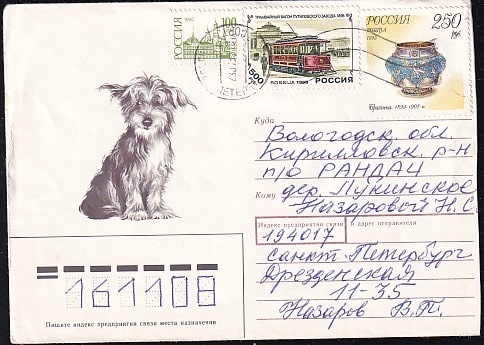 РОССИЯ 1992 100
ТРАМВАЙНЫЙ ВАГОН ПУТИЛОВСКОГО ЗАВОДА 1896
500
РОССИЯ
ROSSIJA 1996
РОССИЯ 250
1993 руб.
Братина. 1899-1908 г.
Куда
Вологодск. обл.
Кирилловск. р-н
п/о РАНДАЧ
Кому дер. Лукинское
Назаровой Н. С.
Индекс предприятия связи и адрес отправителя
194017
Санкт-Петербург
Дрезденская
11-35
Назаров В. П.
161108
Пишите индекс предприятия связи места назначения